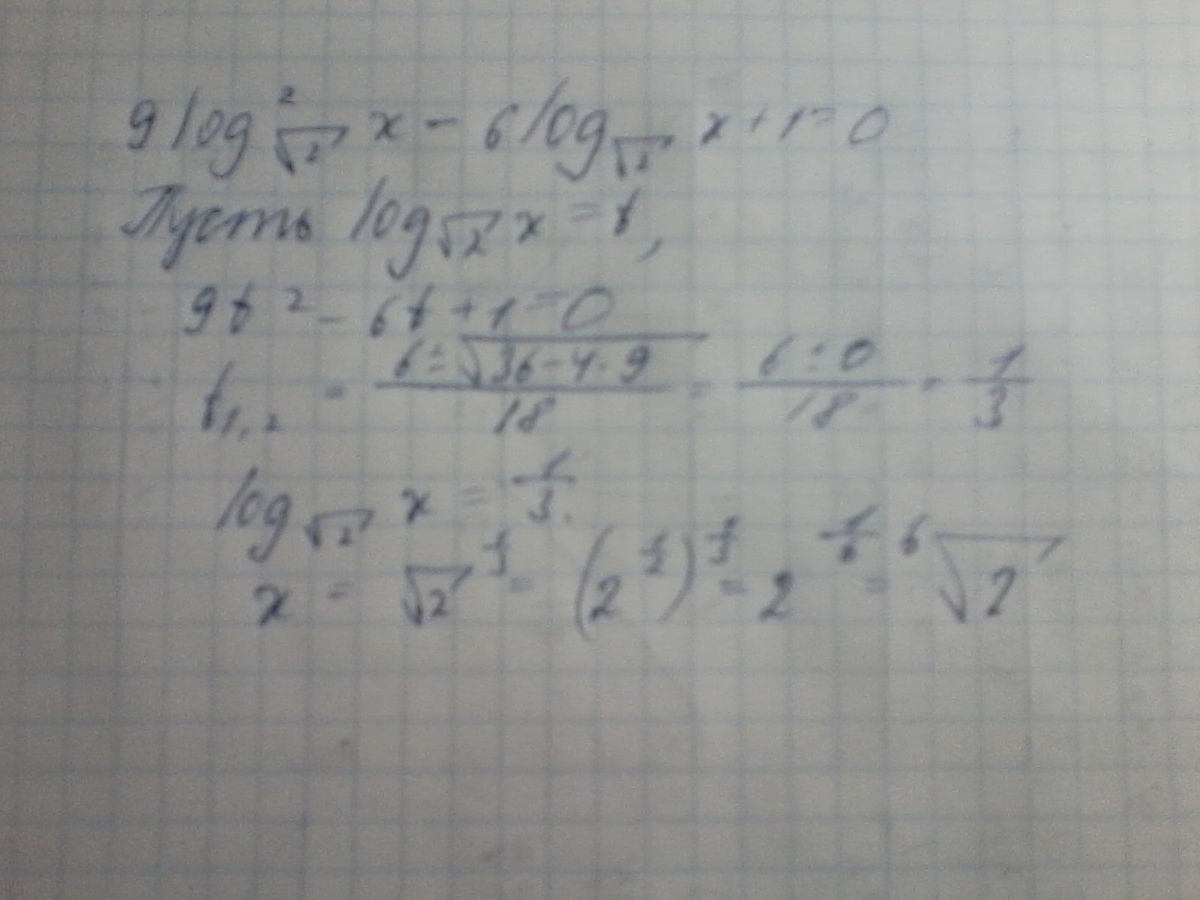 9 log²_√2 x − 6 log_√2 x + 1 = 0
Пусть log_√2 x = t,
9t² − 6t + 1 = 0
t₁,₂ = (6 ± √(36 − 4·9))/18 = (6 ± 0)/18 = 1/3
log_√2 x = 1/3.
x = √2^(1/3) = (2^(1/2))^(1/3) = 2^(1/6) = ⁶√2